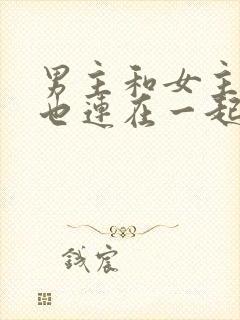 男主和女主
也连在一起
钱宸